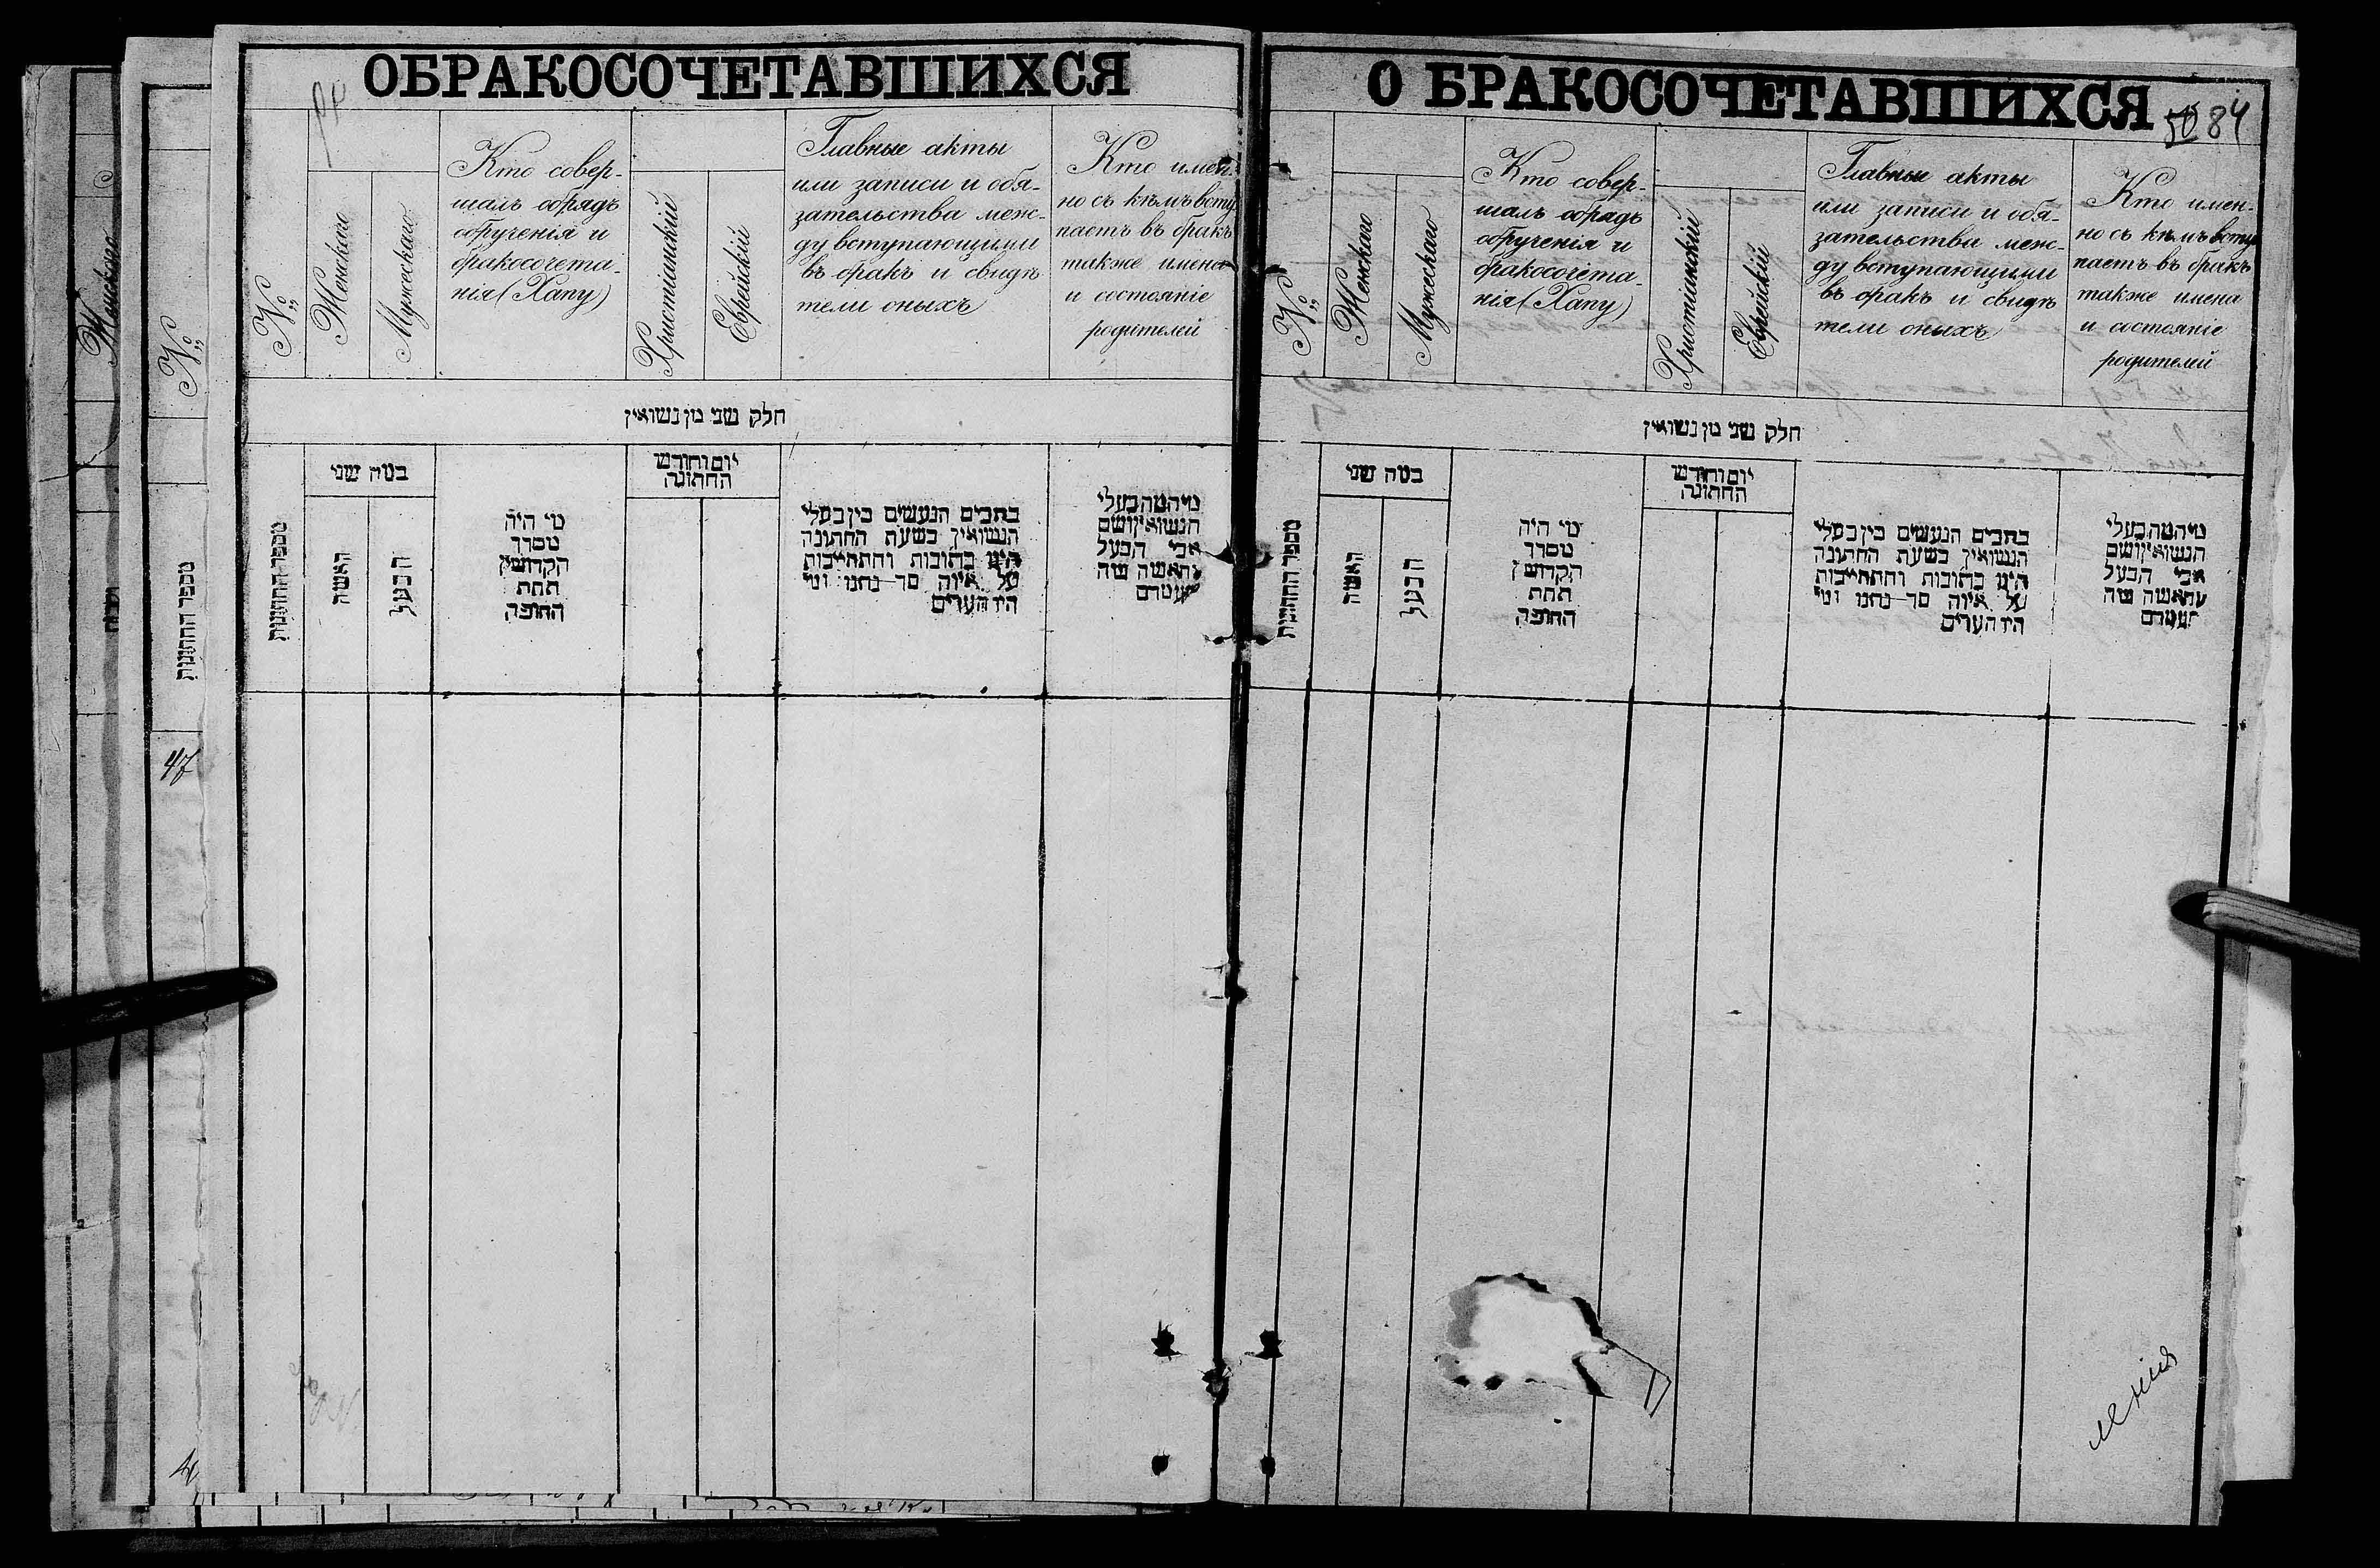 ОБРАКОСОЧЕТАВШИХСЯ
№
Женскаго
Мужескаго
Кто совер-
шалъ обрядъ
обрученія и
бракосочета-
нія (Хапу)
Христіанскій
Еврейскій
Главные акты
или записи и обя-
зательства меж-
ду вступающими
въ бракъ и свидѣ
тели оныхъ
Кто имен-
но съ кѣмъ всту
паетъ въ бракъ
также имена
и состояніе
родителей
חלק שני מן נשואין
מספר החתונות
כמה שני
האשה
הבעל
מי היה
מסדר
הקדושין
תחת
החופה
יום וחודש
החתונה
כתבים הנעשים בין בעלי
הנשואין בשעת החתונה
היינו כתובות והתחייבות
על איזה סך נתנו ומי
היו העדים
מי המה בעלי
הנשואין ושם
אבי הבעל
והאשה מה
שמם
О БРАКОСОЧЕТАВШИХСЯ
50 84
№
Женскаго
Мужескаго
Кто совер-
шалъ обрядъ
обрученія и
бракосочета-
нія (Хапу)
Христіанскій
Еврейскій
Главные акты
или записи и обя-
зательства меж-
ду вступающими
въ бракъ и свидѣ
тели оныхъ
Кто имен-
но съ кѣмъ всту
паетъ въ бракъ
также имена
и состояніе
родителей
חלק שני מן נשואין
מספר החתונות
כמה שני
האשה
הבעל
מי היה
מסדר
הקדושין
תחת
החופה
יום וחודש
החתונה
כתבים הנעשים בין בעלי
הנשואין בשעת החתונה
היינו כתובות והתחייבות
על איזה סך נתנו ומי
היו העדים
מי המה בעלי
הנשואין ושם
אבי הבעל
והאשה מה
Женскаго
№
מספר החתונות
47